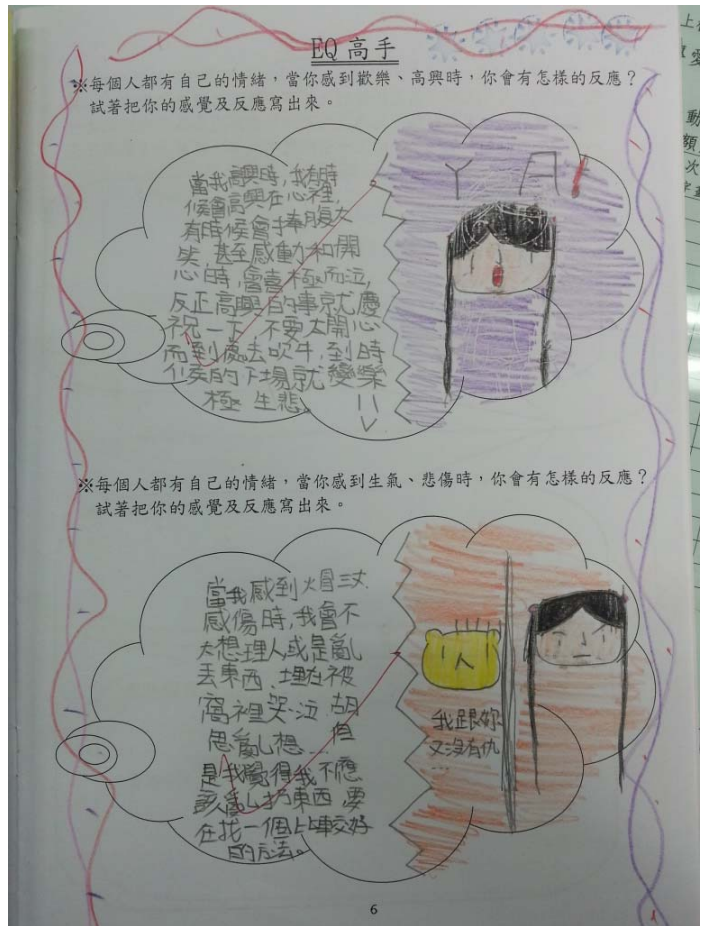 EQ 高手
※每個人都有自己的情緒，當你感到歡樂、高興時，你會有怎樣的反應？
試著把你的感覺及反應寫出來。
當我高興時，我有時
候會高興在心裡，
有時候會捧腹大
笑，甚至感動和開
心時，會喜極而泣，
反正高興的事就慶
祝一下，不要太開心
而到處去吹牛，到時
候的下場就變樂
極生悲。
※每個人都有自己的情緒，當你感到生氣、悲傷時，你會有怎樣的反應？
試著把你的感覺及反應寫出來。
當我感到火冒三丈
感傷時，我會不
太想理人，或是亂
丟東西、埋在被
窩裡哭泣、胡
思亂想……但
是我覺得我不應
該亂扔東西，要
在找一個比較好
的方法。
我跟妳
又沒有仇
…
6